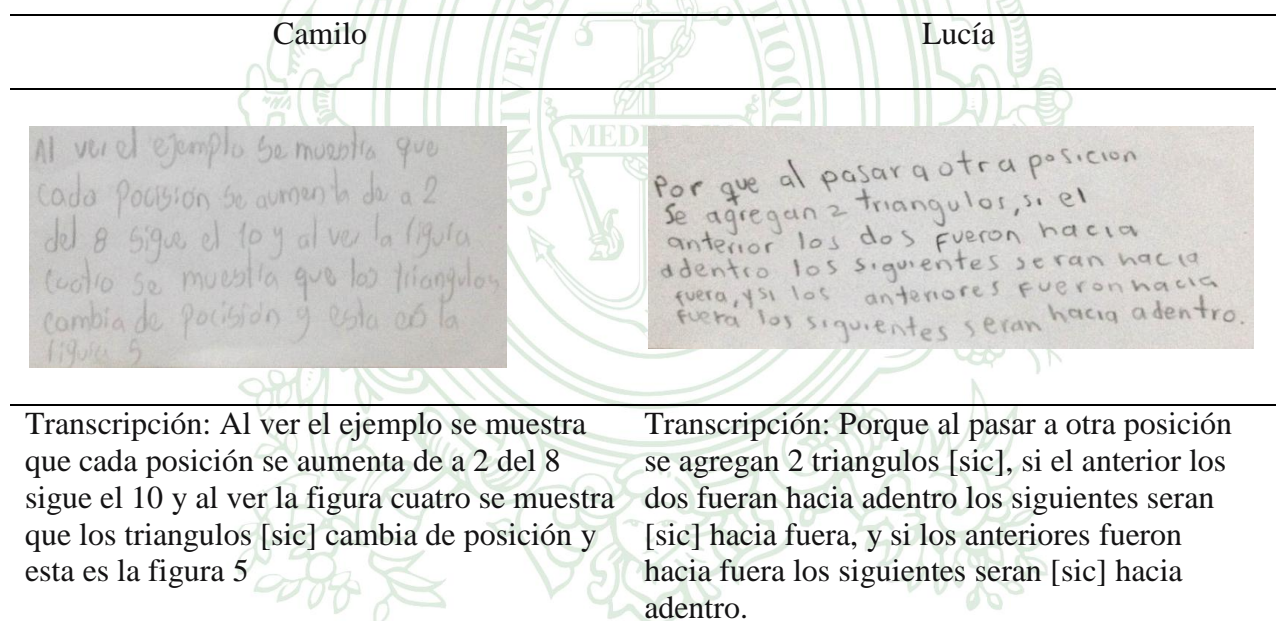 Camilo
Lucía
Al ver el ejemplo se muestra que
cada Pocisión se aumenta de a 2
del 8 sigue el 10 y al ver la figura
cuatro se muestra que los triangulos
cambia de pocisión y esta es la
figura 5
Por que al pasar a otra posicion
Se agregan 2 triangulos, si el
anterior los dos fueron hacia
adentro los siguientes seran hacia
fuera, y si los anteriores fueron hacia
fuera los siguientes seran hacia adentro.
Transcripción: Al ver el ejemplo se muestra
que cada posición se aumenta de a 2 del 8
sigue el 10 y al ver la figura cuatro se muestra
que los triangulos [sic] cambia de posición y
esta es la figura 5
Transcripción: Porque al pasar a otra posición
se agregan 2 triangulos [sic], si el anterior los
dos fueran hacia adentro los siguientes seran
[sic] hacia fuera, y si los anteriores fueron
hacia fuera los siguientes seran [sic] hacia
adentro.